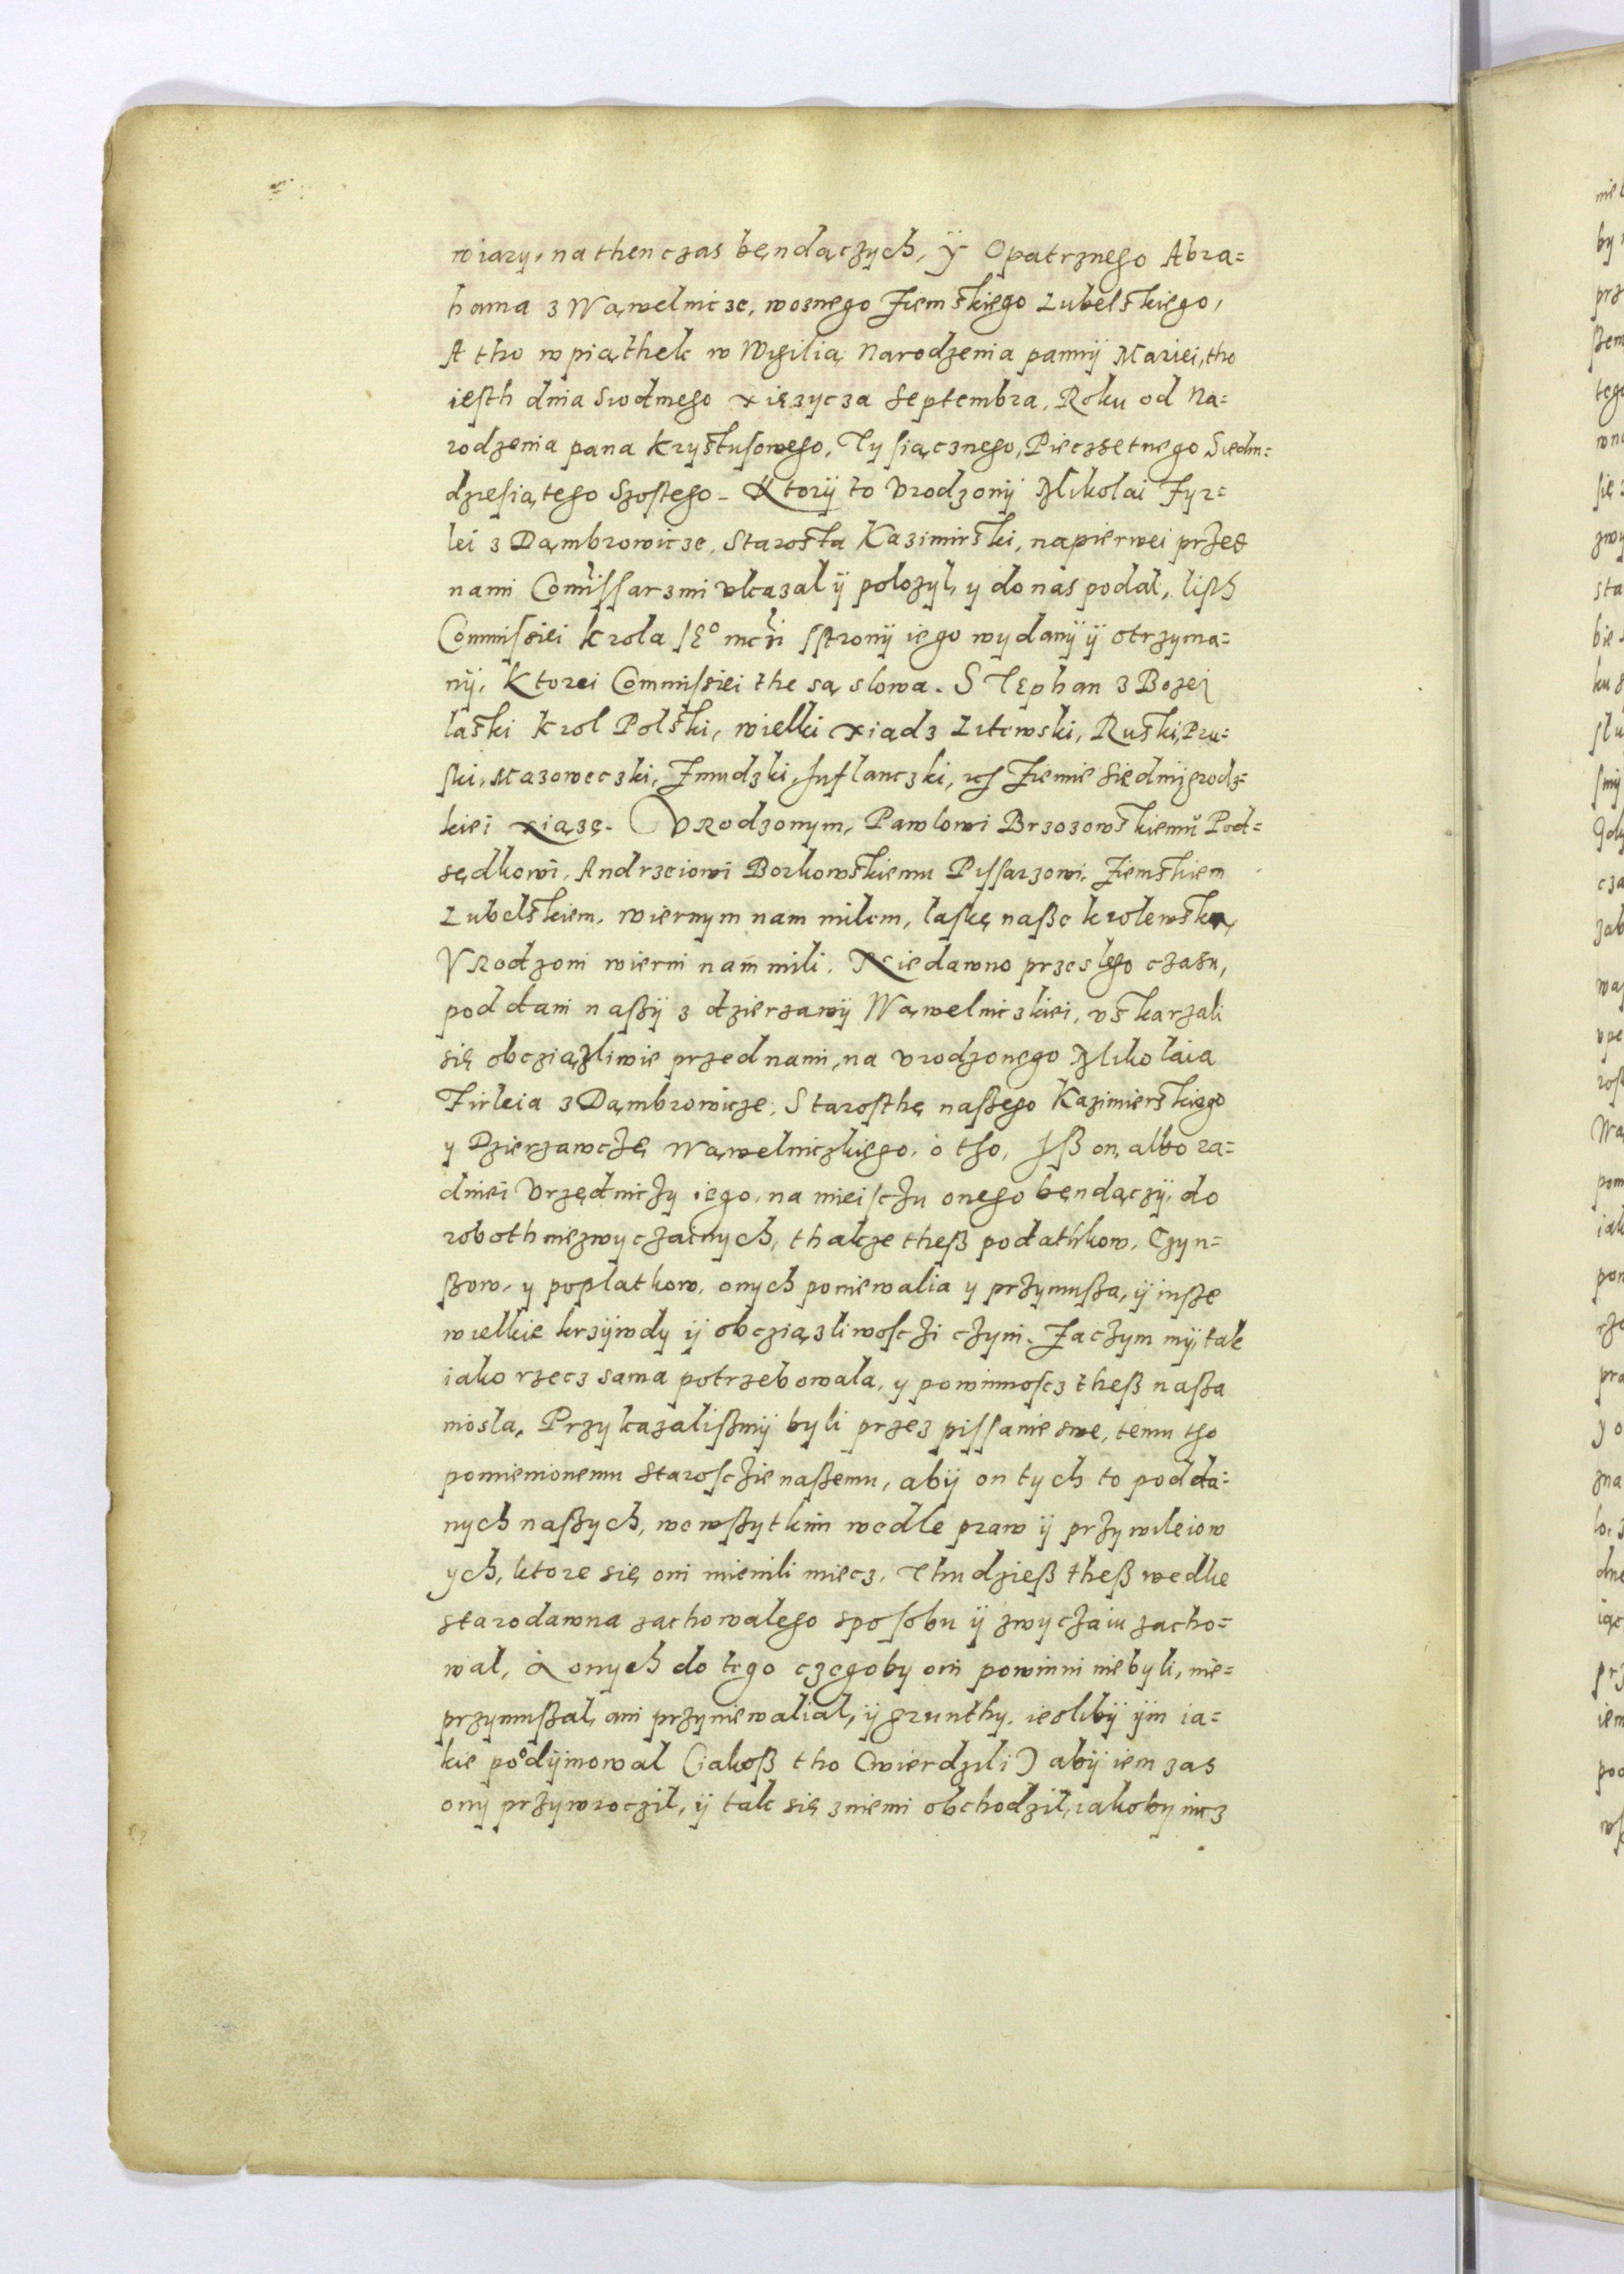 wiary, na then czas bęndączych, ÿ Opatrznego Abra=
hama z Wąwelnicze, woznego Ziemskiego Lubelskiego,
A tho w piąthek w Wigilią Narodzenia pannÿ Mariei, tho
iesth dnia Siodmego xięzycza Septembra, Roku od Na=
rodzenia pana Krystusowego, Tysiącznego, Pieczsetnego Siedm=
dziesiątego Szostego. Ktorÿ to Vrodzonÿ Mikolai Fyr=
lei z Dąmbrowicze, Starosta Kazimirski, napierwei przed
nami Comissarzmi vkazal ÿ polozyl, y do nas podal, listh
Commissiei Krola JEº mczi sstronÿ iego wydanÿ ÿ otrzyma=
nÿ, Ktorei Commissiei the są slowa. STEphan z Bozei
laski Krol Polski, wielki xiądz Litewski, Ruski, Pru=
ski, Mazoweczki, Zmudzki, Inflanczki, ÿ Ziemie Siedmÿgrodz=
kiei xiązę. VRodzonym, Pawlowi Brzozowskiemu Pod=
sędkowi, Andrzeiowi Borkowskiemu Pissarzowi, Ziemskiem
Lubelskiem, wiernym nam milem, laskę naßę krolewską,
VRodzoni wierni nam mili. Niedawno przeslego czasu,
poddani naßÿ z dzierzawÿ Wąwelniczkiei, vskarzali
się obcziązliwie przed nami, na vrodzonego Mikolaia
Firleia z Dąmbrowicze, Starosthę naßego Kazimierskiego
y Dzierzawczę Wąwelniczkiego, o tho, Iß on, albo ra=
dniei Vrzędniczy iego, na mieisczu onego bęndączÿ, do
roboth niezwyczainych, thakze theß podathkow, Czyn=
ßow, y poplatkow, onych poniewalia y przymußa, ÿ insze
wielkie krzÿwdy ÿ obcziązliwosczi czyni. Zaczym mÿ, tak
iako rzecz sama potrzebowala, y powinnoscz theß naßa
niosla, Przykazalißmÿ byli przez pissanie swe, temu tho
pomienionemu Starosczie naßemu, abÿ on tych to podda=
nych naßych, we wßytkim wedle praw ÿ przywileiow
ych, ktore się oni mienili miecz, Thudzieß theß wedle
starodawna zachowalego sposobu ÿ zwyczaiu zacho=
wal, A onych do tego czegoby oni powinni niebyli, nie=
przymußal, ani przyniewalial, ÿ grunthy, iesliby ÿm ia=
kie podÿmowal (iakoß tho Cwierdzili) abÿ iem zas
ony przywroczil, ÿ tak się zniemi obchodzil, iakoby nicz